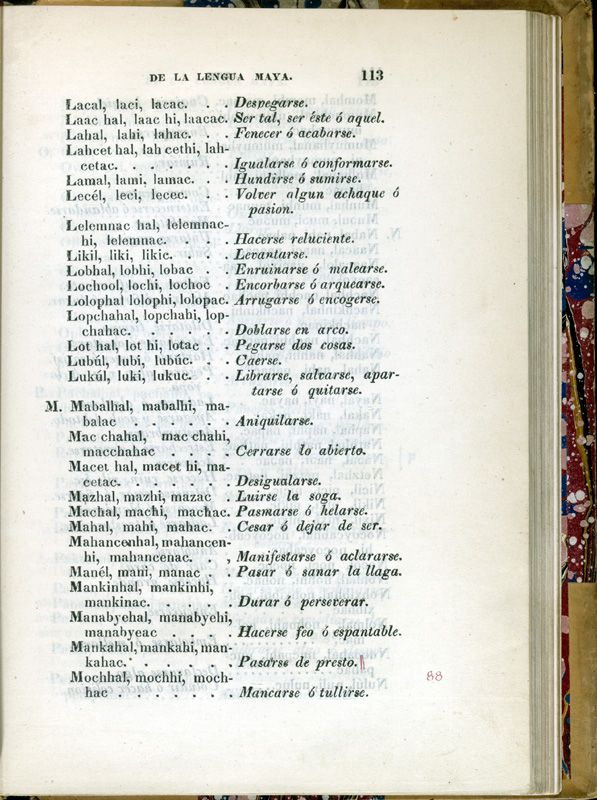 DE LA LENGUA MAYA. 113
Lacal, laci, lacac. . . Despegarse.
Laac hal, laac hi, laacac. Ser tal, ser éste ó aquel.
Lahal, lahi, lahac. . . Fenecer ó acabarse.
Lahcet hal, lah cethi, lah-
cetac. . . . . . . Igualarse ó conformarse.
Lamal, lami, lamac. . . Hundirse ó sumirse.
Lecél, leci, lecec. . . Volver algun achaque ó
pasion.
Lelemnac hal, lelemnac-
hi, lelemnac. . . . Hacerse reluciente.
Likil, liki, likic. . . Levantarse.
Lobhal, lobhi, lobac . . Enruinarse ó malearse.
Lochool, lochi, lochoc . Encorbarse ó arquearse.
Lolophal lolophi, lolopac. Arrugarse ó encogerse.
Lopchahal, lopchahi, lop-
chahac. . . . . . Doblarse en arco.
Lot hal, lot hi, lotac . . Pegarse dos cosas.
Lubúl, lubi, lubúc. . . Caerse.
Lukúl, luki, lukuc. . . Librarse, salvarse, apar-
tarse ó quitarse.
M. Mabalhal, mabalhi, ma-
balac . . . . . . Aniquilarse.
Mac chahal, mac chahi,
macchahac . . . . Cerrarse lo abierto.
Macet hal, macet hi, ma-
cetac. . . . . . . Desigualarse.
Mazhal, mazhi, mazac . Luirse la soga.
Machal, machi, machac. Pasmarse ó helarse.
Mahal, mahi, mahac. . Cesar ó dejar de ser.
Mahancenhal, mahancen-
hi, mahancenac. . , Manifestarse ó aclararse.
Manél, mani, manac . . Pasar ó sanar la llaga.
Mankinhal, mankinhi, .
mankinac. . . . . Durar ó perseverar.
Manabyehal, manabyehi,
manabyeac . . . . Hacerse feo ó espantable.
Mankahal, mankahi, man-
kahac. . . . . . . Pasarse de presto.
Mochhal, mochhi, moch- 88
hac . . . . . . . Mancarse ó tullirse.